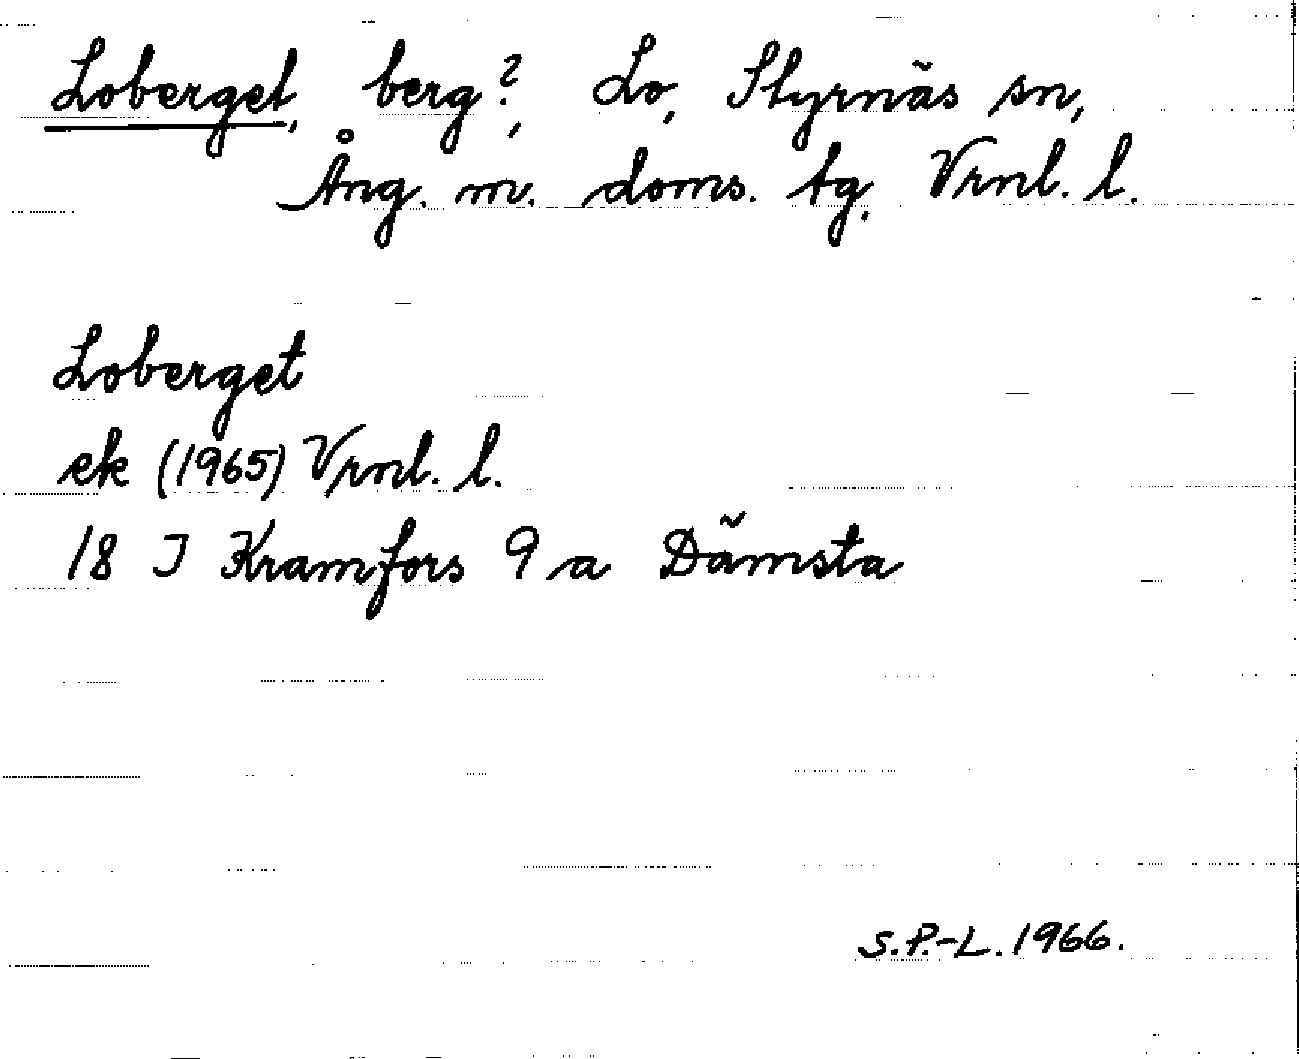 Loberget, berg?, Lo, Styrnäs sn,
Ång. m. doms. tg, Vrnl. l.
Loberget
ek (1965) Vrnl. l.
18 I Kramfors 9 a Dämsta
S.P.-L. 1966.